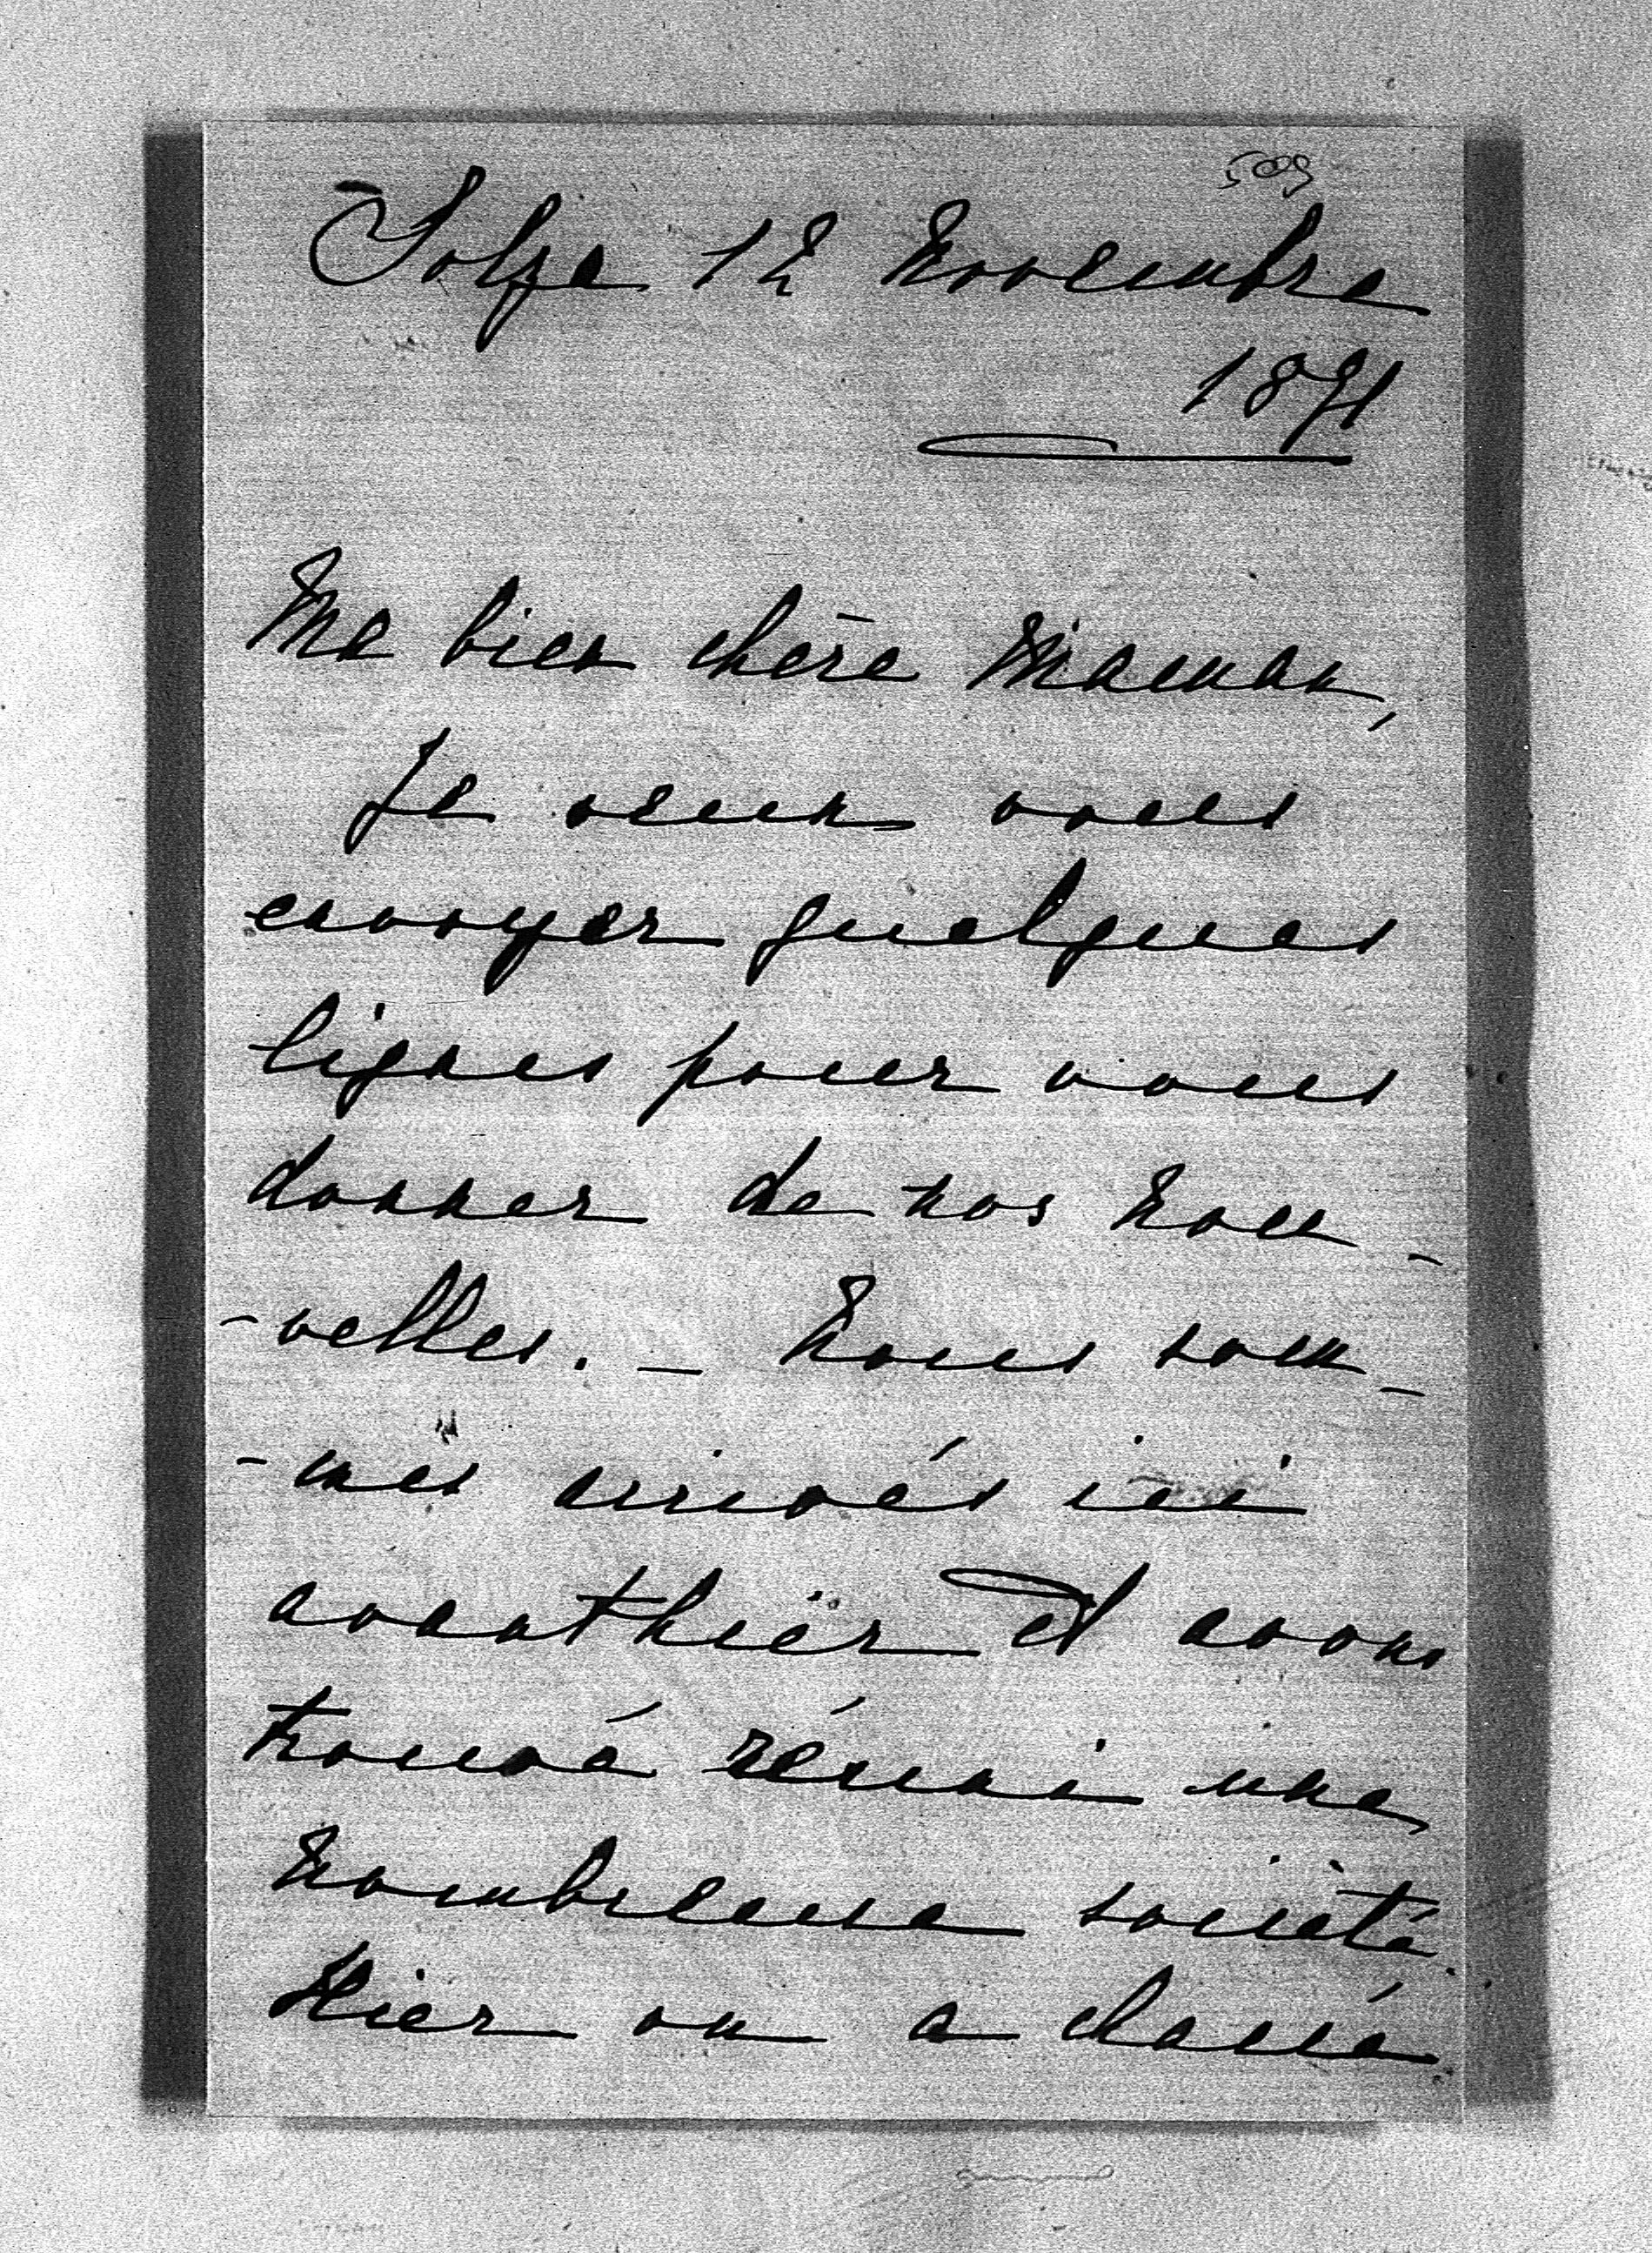 Tolza 12 Novembre
1891
Ma bien chère Maman,
Je veux vous
envoyer quelques
lignes pour vous
donner de nos nou-
-velles. - Nous som-
-mes arrivés ici
avanthier et avons
trouvé réuni une
nombreuse société.
Hier on a chassé